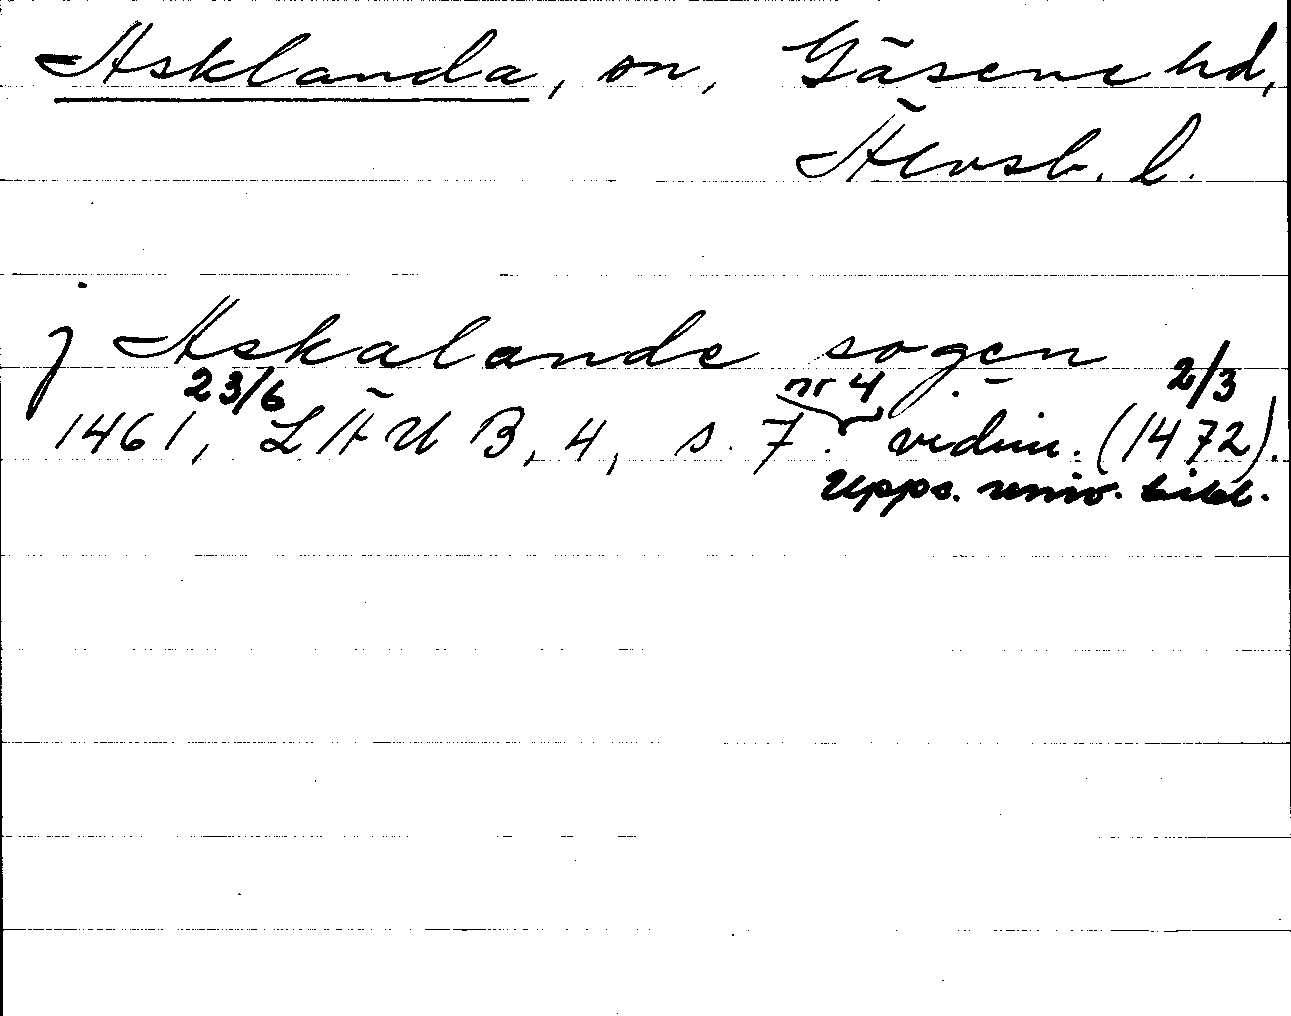 Asklanda, sn, Gäsene hd,
Älvsb. l.
j Askalande sogen
23/6 nr 4 2/3
1461, LÄUB, 4, s. 7. vidim. (1472).
Upps. univ. bibl.